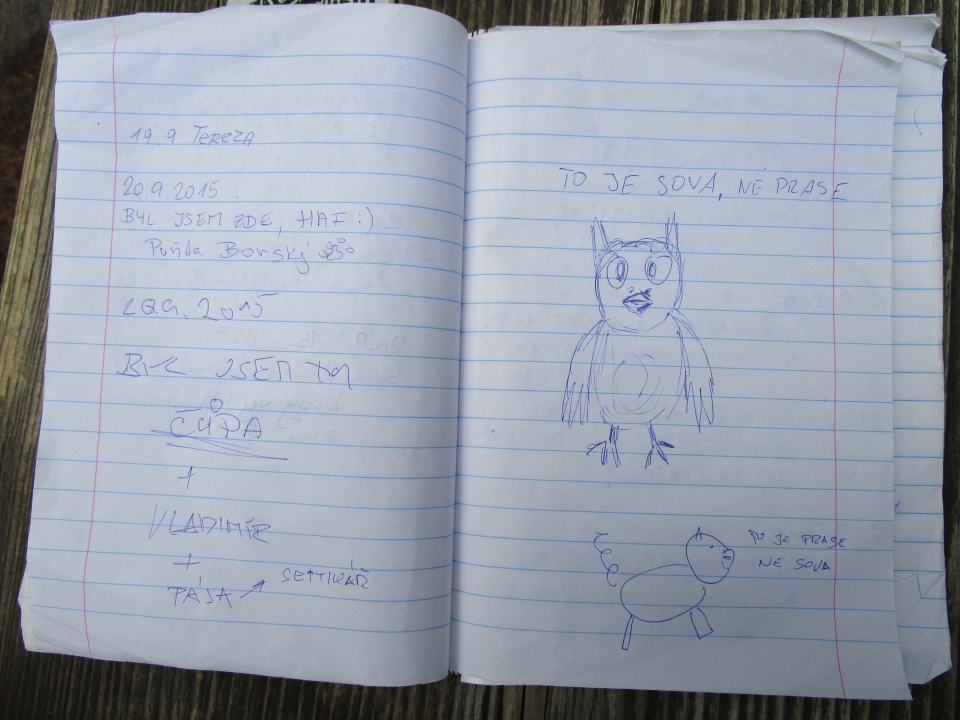 19.9. TEREZA
20.9.2015.
BYL JSEM ZDE, HAF :)
Punťa Borský
20.9.2015
BYL JSEM TU
ČŮPA
+
VLADIMÍR
+
PÁJA
TO JE SOVA, NE PRASE
TO JE PRASE
NE SOVA